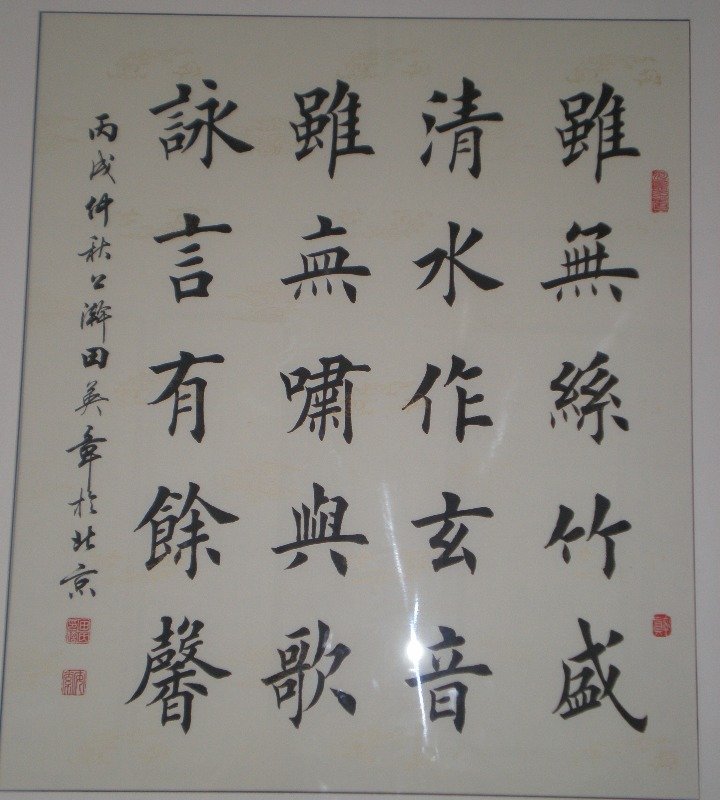 雖無絲竹盛
清水作玄音
雖無嘯與歌
詠言有餘馨
丙戌仲秋公瀚田英章於北京